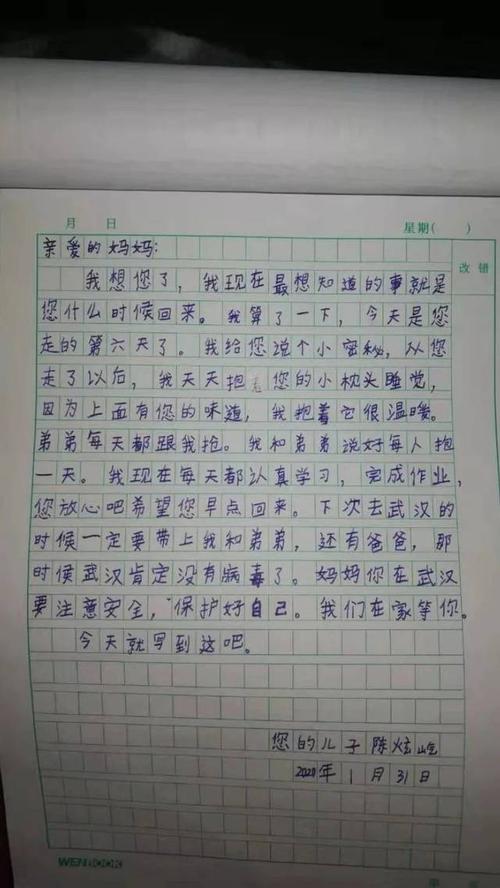 月 日 星期( )
改错
亲爱的妈妈:
我想您了，我现在最想知道的事就是
您什么时候回来。我算了一下，今天是您
走的第六天了。我给您说个小密秘，从您
走了以后，我天天抱着您的小枕头睡觉，
因为上面有您的味道，我抱着它很温暖。
弟弟每天都跟我抢。我和弟弟说好每人抱
一天。我现在每天都认真学习，完成作业，
您放心吧希望您早点回来。下次去武汉的
时候一定要带上我和弟弟，还有爸爸，那
时侯武汉肯定没有病毒了。妈妈你在武汉
要注意安全，保护好自己。我们在家等你。
今天就写到这吧。
您的儿子陈炫屹
2020年1月31日